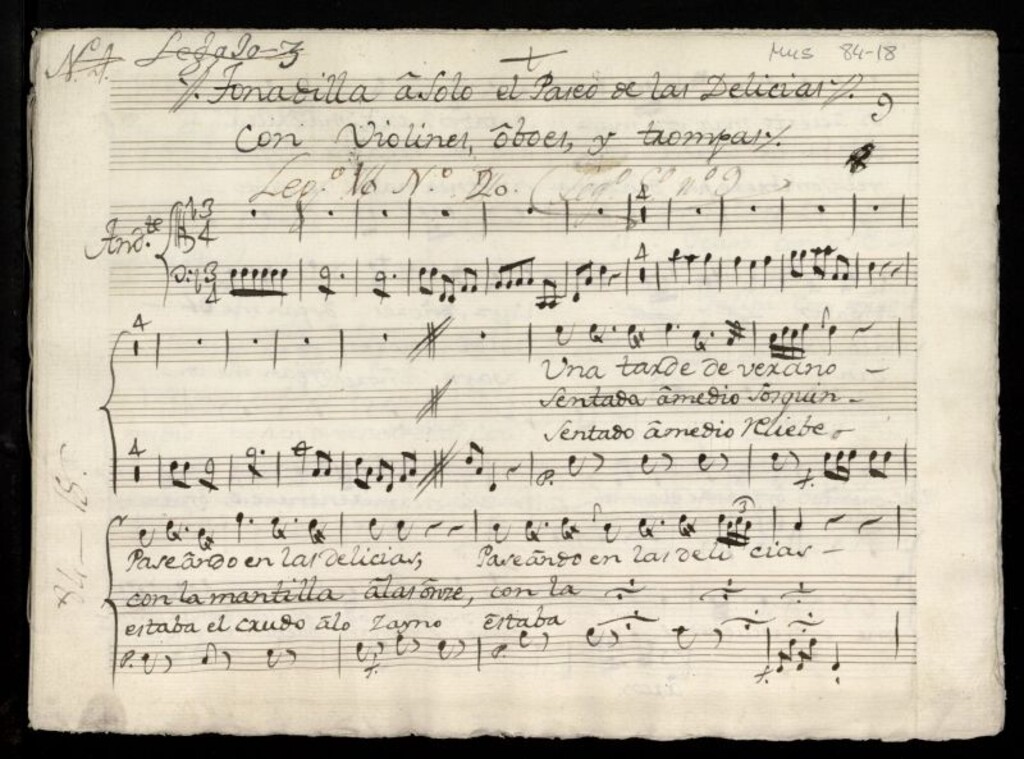 N.º 1. Legajo 3 Mus 84-18
Tonadilla â Solo el Paseo de las Delicias 9
Con Violines, ôboes, y trompas
Leg.º 18 N.º 20.
And.te
3 4
4
3 4
4
4
Una tarde de verano –
Sentada âmedio
Sentado âmedio
4
P.
3
Paseândo en las delicias, Paseândo en las deli cias –
con la mantilla âlas ônze, con la
estaba el crudo âlo Zayno êstaba
P. P.
84-18